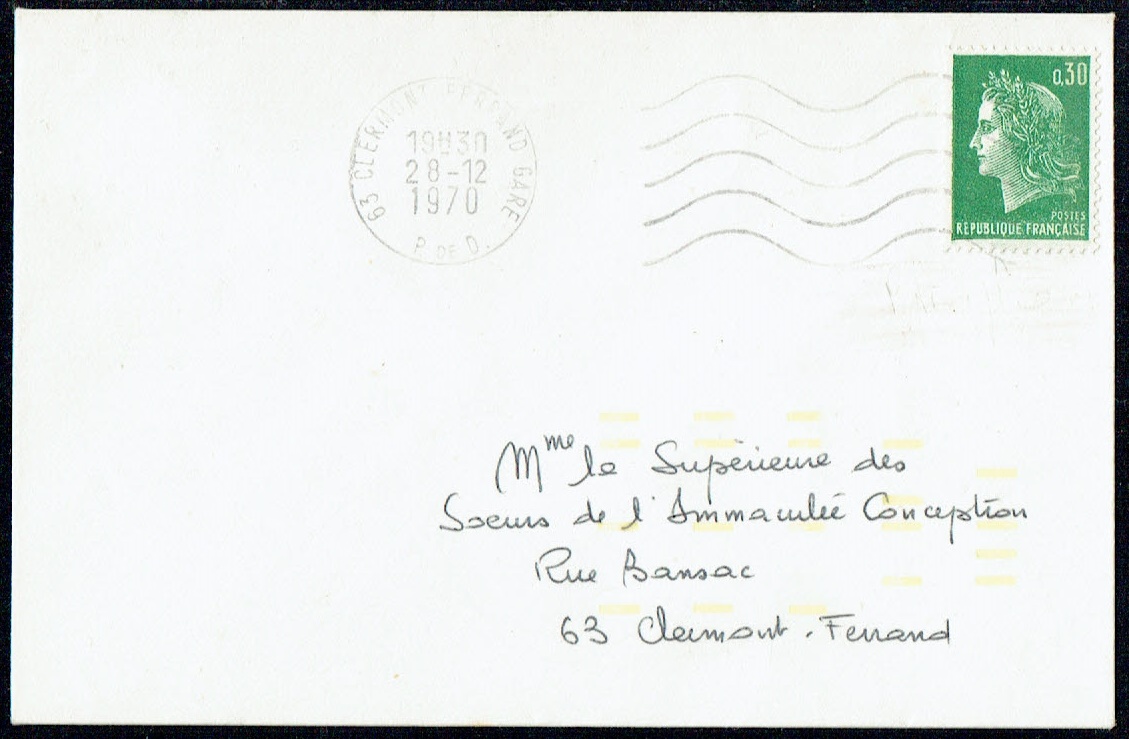 63 CLERMONT FERRAND GARE
19H30
28-12
1970
P. DE D.
0,30
POSTES
REPUBLIQUE FRANÇAISE
Mme la Supérieure des
Soeurs de l'Immaculée Conception
Rue Bansac
63 Clermont-Ferrand